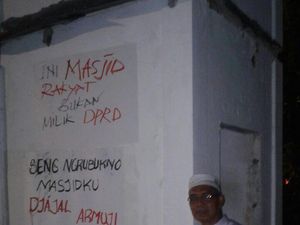 INI MASJID
RAKYAT
BUKAN
MILIK DPRD
SENG NGRUBUHNO
MASJIDKU
DJAJAL
ARMUJI